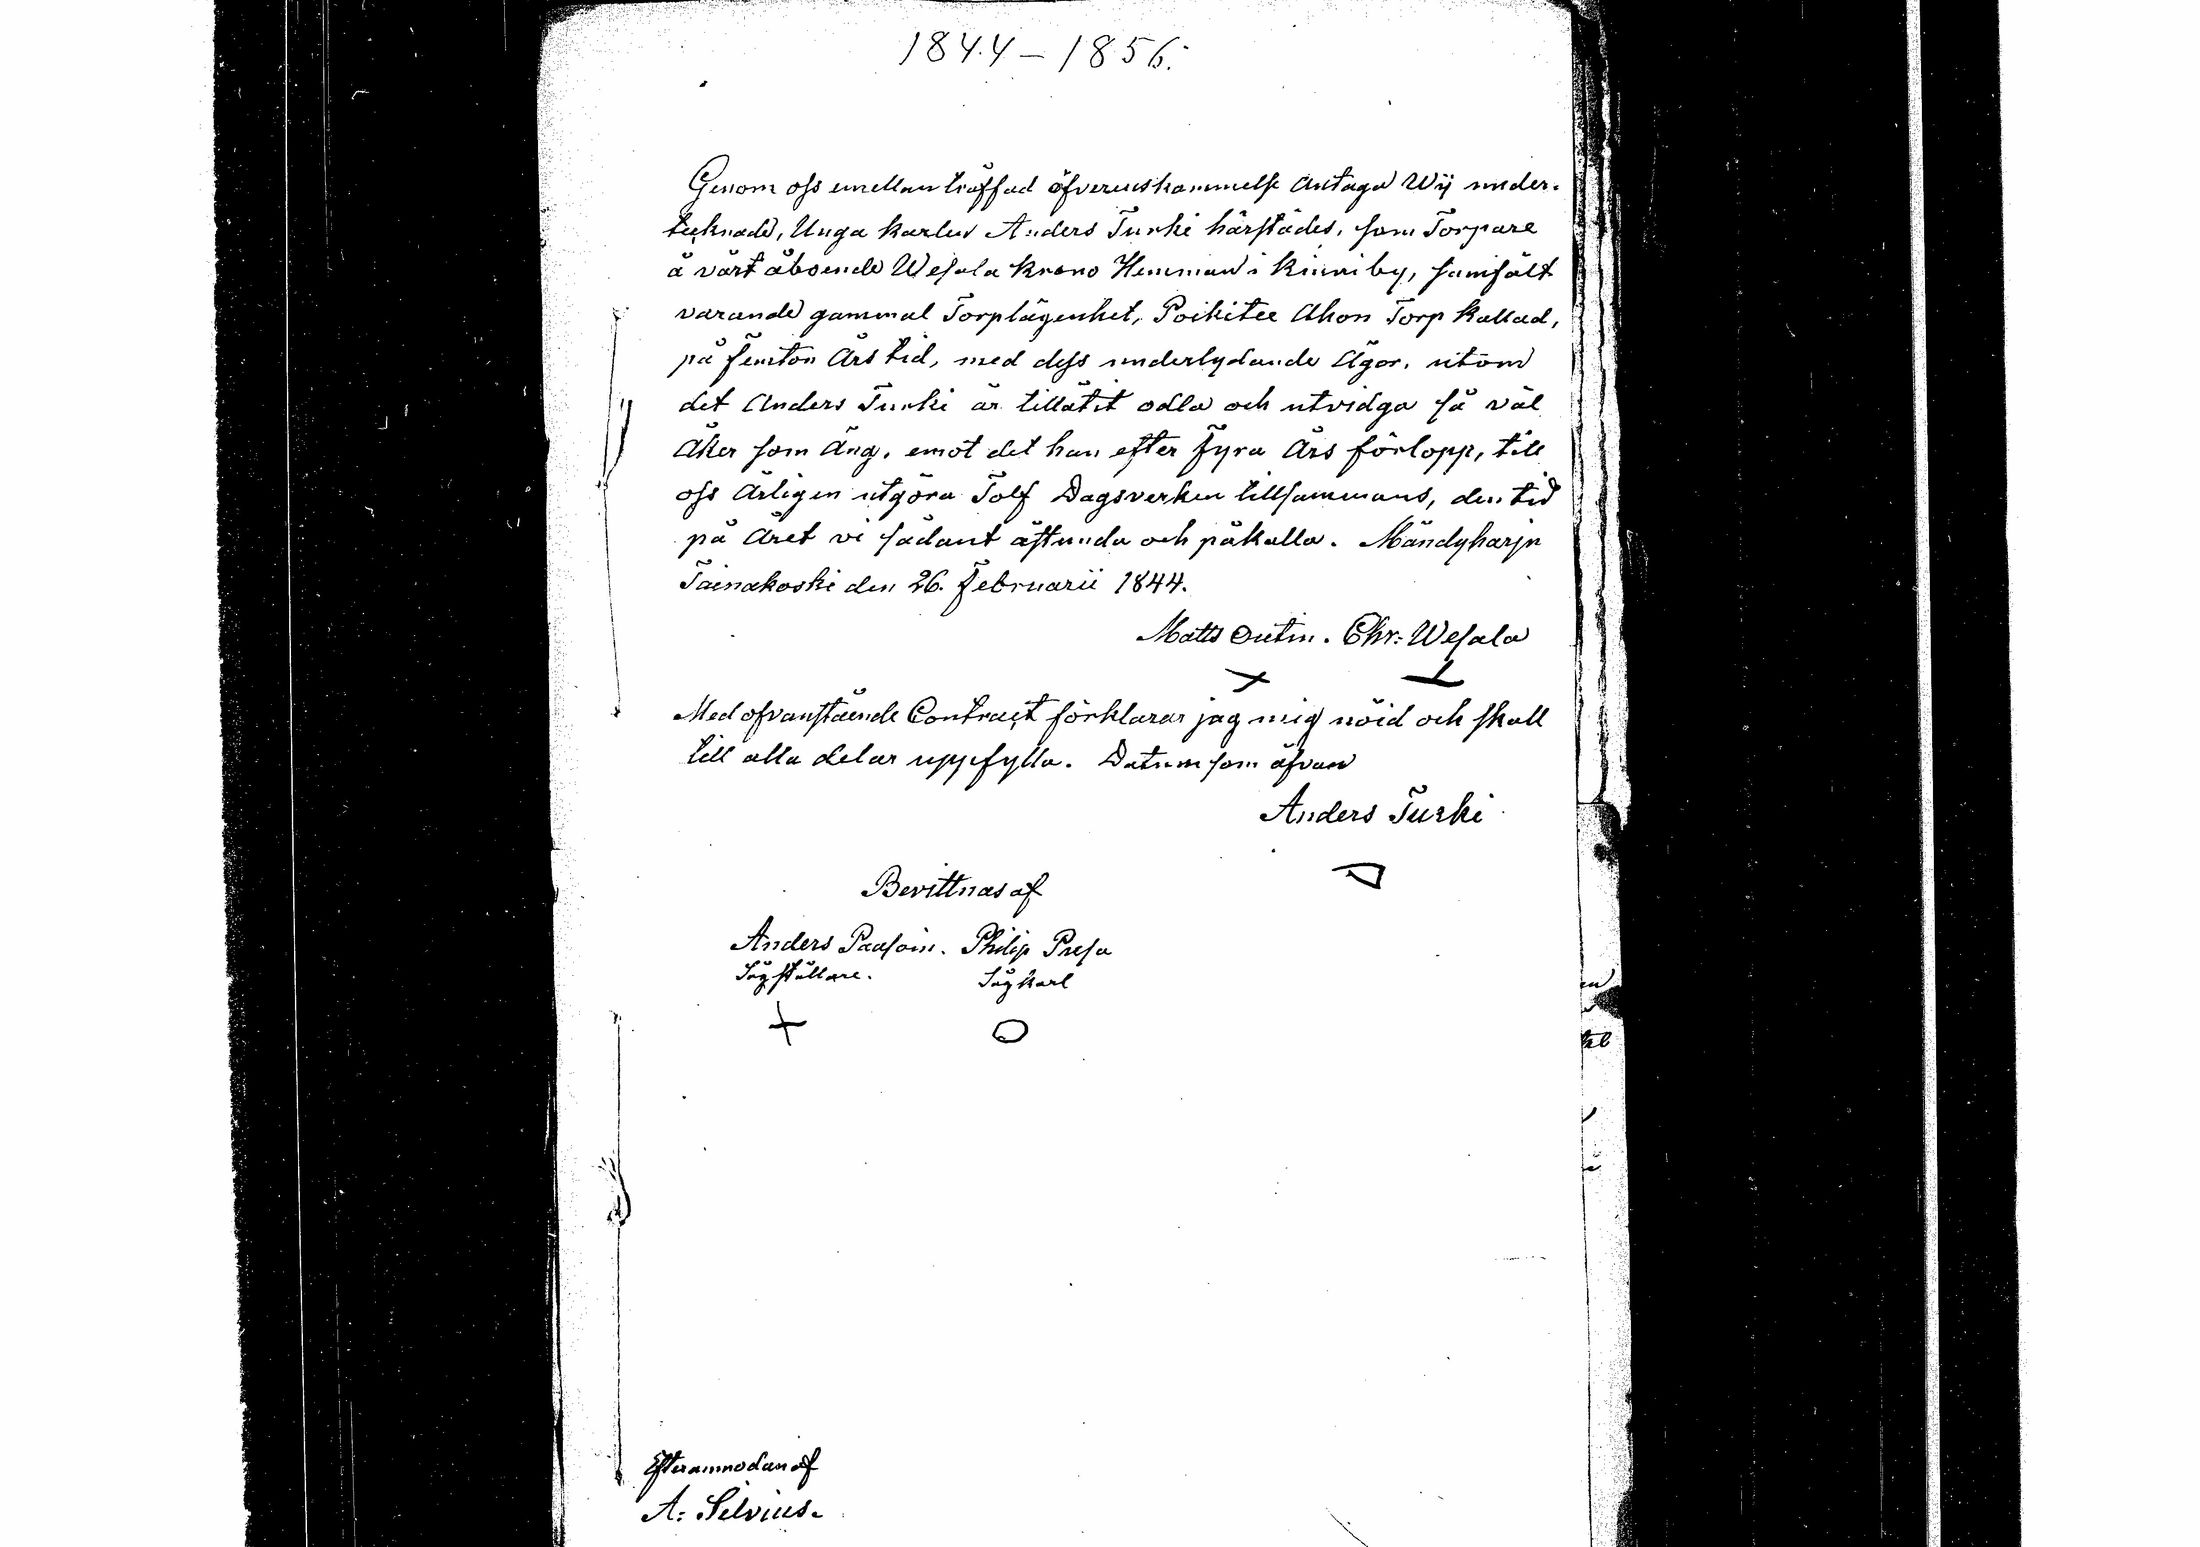 1844 – 1856.
Genom oss emellan träffad öfverenskommelse Antaga Wij under-
tecknade, Unga karlen Anders Turki härstädes, som Torpare
å vårt åboende Wesala Krono Hemman i Kinni by, samfält
varande gammal Torplägenhet, Poikitee Ahon Torp kallad,
på Femton Års tid, med dess underlydande Ägor, utom
det Anders Turki är tillåtit odla och utvidga så väl
Åker som Äng, emot det han efter Fyra Års förlopp, till
oss Årligen utgöra Tolf Dagsverken tillsammans, den tid
på Året vi sådant åstunda och påkalla. Mändyharju
Tainakoski den 26. Februarii 1844.
Matts Outin. Chr: Wesala
Med ofvanstäende Contract förklarar jag mig nöid och skall
till alla delar uppfylla. Datum som åfvan
Anders Turki
Bevittnas af
Anders Pausoin. Philip Presa
Sågställare. Sågkarl
Efter anmodan af
A: Silvius.